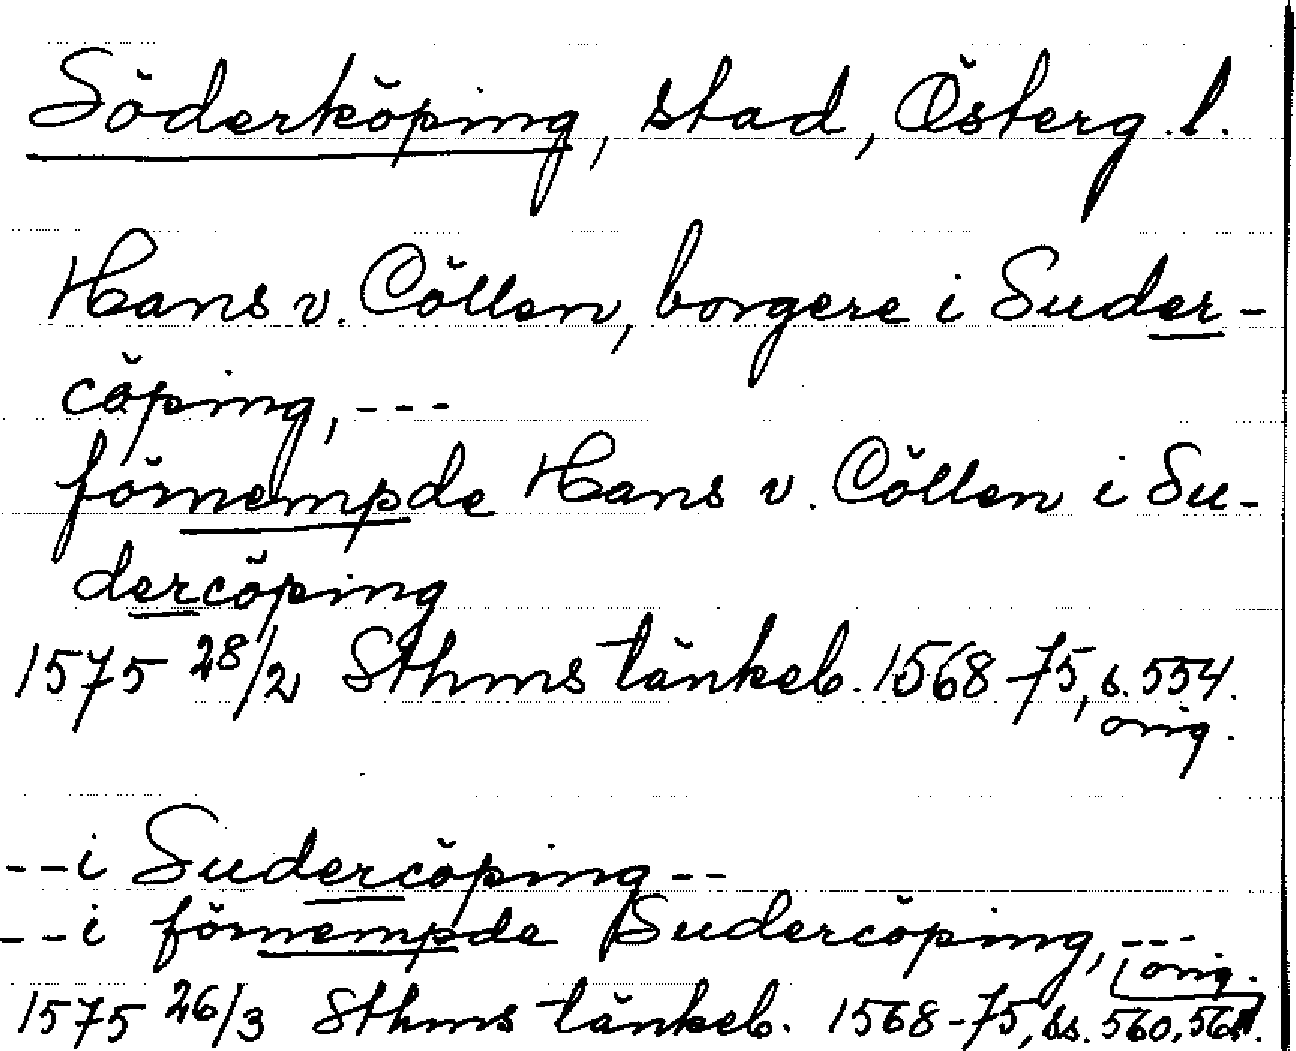 Söderköping, stad, Österg. l.
Hans v. Cöllen, borgere i Suder-
cöping, ---
förnempde Hans v. Cöllen i Su-
dercöping
1575 28/2 Sthms tänkeb. 1568-75, s. 554.
orig.
--i Sudercöping--
--i förnempde Sudercöping, ---
orig.
1575 26/3 Sthms tänkeb. 1568-75, ss. 560, 561.